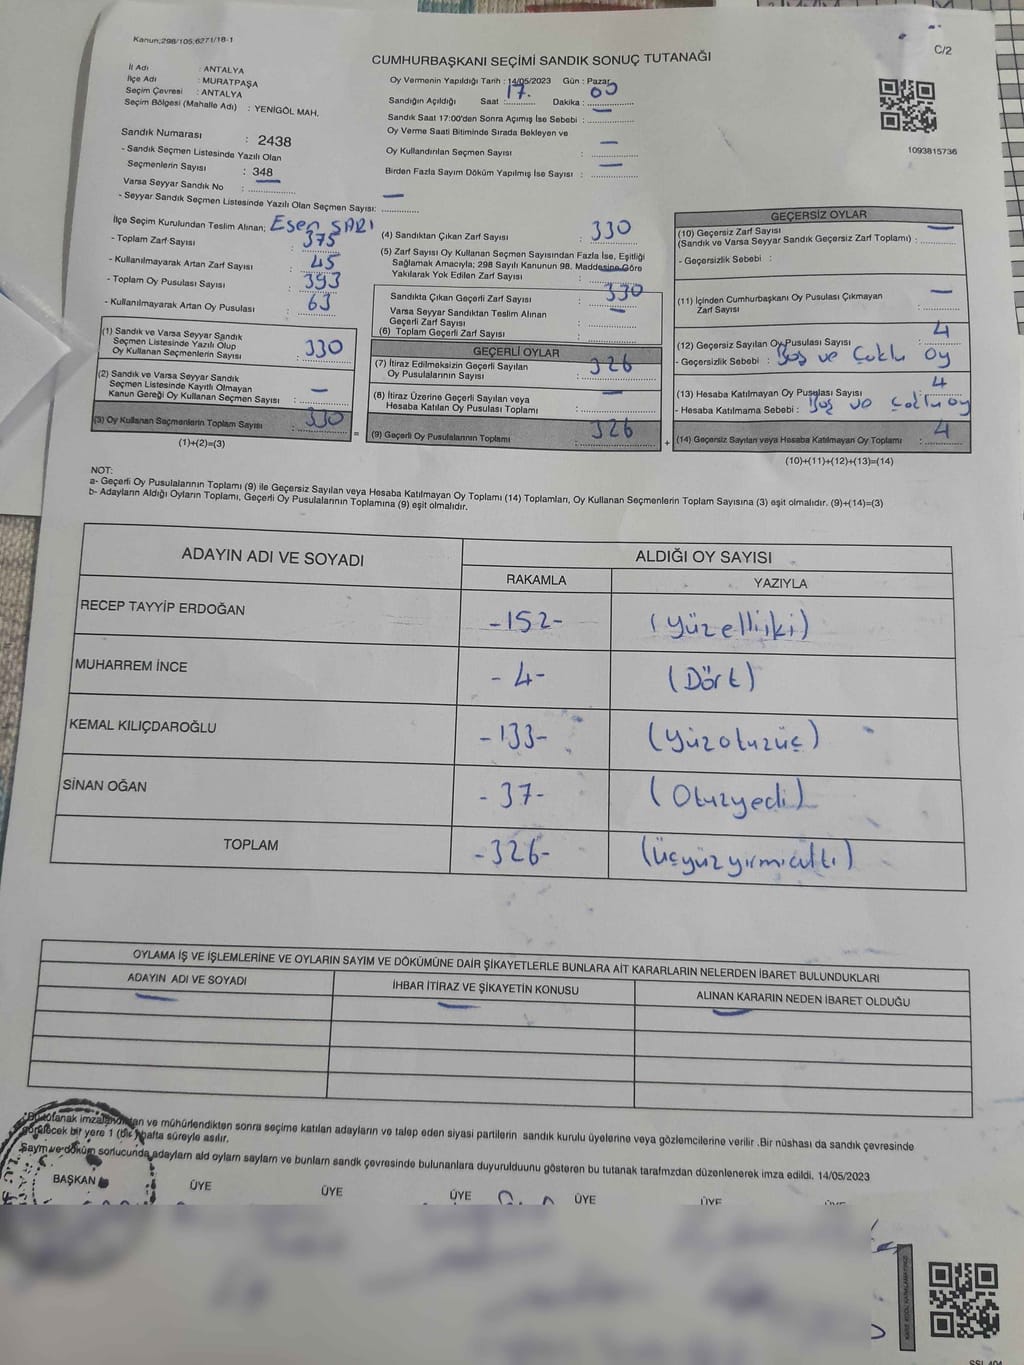 Kanun;298/105;6271/18-1
C/2
CUMHURBAŞKANI SEÇİMİ SANDIK SONUÇ TUTANAĞI
İl Adı : ANTALYA
İlçe Adı : MURATPAŞA
Seçim Çevresi : ANTALYA
Seçim Bölgesi (Mahalle Adı) : YENİGÖL MAH.
Oy Vermenin Yapıldığı Tarih : 14/05/2023 Gün : Pazar
Sandığın Açıldığı Saat : 17. Dakika : 00
Sandık Saat 17:00'den Sonra Açımış İse Sebebi : –
Oy Verme Saati Bitiminde Sırada Bekleyen ve
Oy Kullandırılan Seçmen Sayısı : –
Birden Fazla Sayım Döküm Yapılmış İse Sayısı : –
1093815736
Sandık Numarası : 2438
- Sandık Seçmen Listesinde Yazılı Olan
Seçmenlerin Sayısı : 348
Varsa Seyyar Sandık No : –
- Seyyar Sandık Seçmen Listesinde Yazılı Olan Seçmen Sayısı: –
İlçe Seçim Kurulundan Teslim Alınan; Esen SARI
- Toplam Zarf Sayısı : 375
- Kullanılmayarak Artan Zarf Sayısı : 45
- Toplam Oy Pusulası Sayısı : 393
- Kullanılmayarak Artan Oy Pusulası : 63
(1) Sandık ve Varsa Seyyar Sandık
Seçmen Listesinde Yazılı Olup
Oy Kullanan Seçmenlerin Sayısı : 330
(2) Sandık ve Varsa Seyyar Sandık
Seçmen Listesinde Kayıtlı Olmayan
Kanun Gereği Oy Kullanan Seçmen Sayısı : –
(3) Oy Kullanan Seçmenlerin Toplam Sayısı : 330
(1)+(2)=(3)
(4) Sandıktan Çıkan Zarf Sayısı : 330
(5) Zarf Sayısı Oy Kullanan Seçmen Sayısından Fazla İse, Eşitliği
Sağlamak Amacıyla; 298 Sayılı Kanunun 98. Maddesine Göre
Yakılarak Yok Edilen Zarf Sayısı : –
Sandıkta Çıkan Geçerli Zarf Sayısı : 330
Varsa Seyyar Sandıktan Teslim Alınan
Geçerli Zarf Sayısı : –
(6) Toplam Geçerli Zarf Sayısı :
GEÇERLİ OYLAR
(7) İtiraz Edilmeksizin Geçerli Sayılan
Oy Pusulalarının Sayısı : 326
(8) İtiraz Üzerine Geçerli Sayılan veya
Hesaba Katılan Oy Pusulası Toplamı : –
(9) Geçerli Oy Pusulalarının Toplamı : 326
GEÇERSİZ OYLAR
(10) Geçersiz Zarf Sayısı
(Sandık ve Varsa Seyyar Sandık Geçersiz Zarf Toplamı) : –
- Geçersizlik Sebebi :
(11) İçinden Cumhurbaşkanı Oy Pusulası Çıkmayan
Zarf Sayısı : –
(12) Geçersiz Sayılan Oy Pusulası Sayısı : 4
- Geçersizlik Sebebi : Boş ve Çoklu oy
(13) Hesaba Katılmayan Oy Pusulası Sayısı : 4
- Hesaba Katılmama Sebebi : Boş ve çoklu oy
(14) Geçersiz Sayılan veya Hesaba Katılmayan Oy Toplamı : 4
(10)+(11)+(12)+(13)=(14)
NOT:
a- Geçerli Oy Pusulalarının Toplamı (9) ile Geçersiz Sayılan veya Hesaba Katılmayan Oy Toplamı (14) Toplamları, Oy Kullanan Seçmenlerin Toplam Sayısına (3) eşit olmalıdır. (9)+(14)=(3)
b- Adayların Aldığı Oyların Toplamı, Geçerli Oy Pusulalarının Toplamına (9) eşit olmalıdır.
ADAYIN ADI VE SOYADI ALDIĞI OY SAYISI
RAKAMLA YAZIYLA
RECEP TAYYİP ERDOĞAN -152- (Yüzelliiki)
MUHARREM İNCE -4- (Dört)
KEMAL KILIÇDAROĞLU -133- (Yüzotuzüç)
SİNAN OĞAN -37- (Otuzyedi)
TOPLAM -326- (üçyüzyirmialtı)
OYLAMA İŞ VE İŞLEMLERİNE VE OYLARIN SAYIM VE DÖKÜMÜNE DAİR ŞİKAYETLERLE BUNLARA AİT KARARLARIN NELERDEN İBARET BULUNDUKLARI
ADAYIN ADI VE SOYADI İHBAR İTİRAZ VE ŞİKAYETİN KONUSU ALINAN KARARIN NEDEN İBARET OLDUĞU
– – –
*Bu tutanak imzalandıktan ve mühürlendikten sonra seçime katılan adayların ve talep eden siyasi partilerin sandık kurulu üyelerine veya gözlemcilerine verilir .Bir nüshası da sandık çevresinde
görülecek bir yere 1 (bir) hafta süreyle asılır.
Sayım ve döküm sonucunda adayların ald oyların sayların ve bunların sandk çevresinde bulunanlara duyurulduunu gösteren bu tutanak tarafmzdan düzenlenerek imza edildi. 14/05/2023
BAŞKAN ÜYE ÜYE ÜYE ÜYE ÜYE